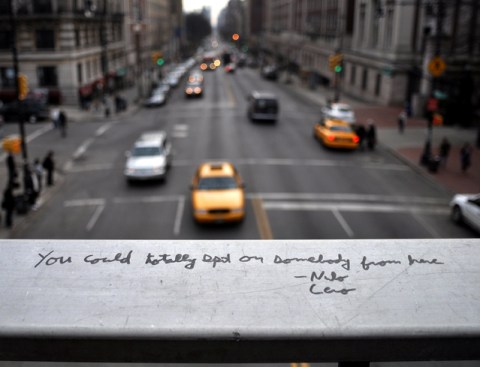 You could totally spit on somebody from here
- Nilo
Cero